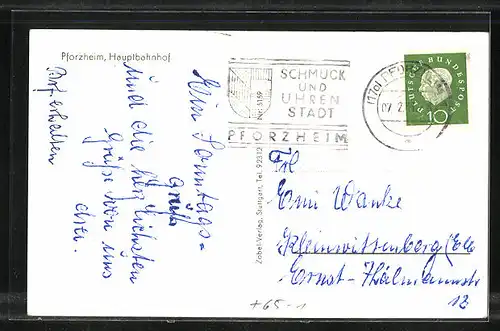 Pforzheim, Hauptbahnhof
Ein Sonntags-
Gruß
und die herzlichsten
Grüße von uns
drei.
Pkt erhalten
Zobel-Verlag, Stuttgart, Tel. 92312
Nr. 5159
SCHMUCK
UND
UHREN
STADT
PFORZHEIM
(17a) PFO
07.2.
DEUTSCHE BUNDESPOST
10
Frl
Emi Wanke
Kleinwittenberg/Elbe
Ernst-Thälmannstr
12
+65-1